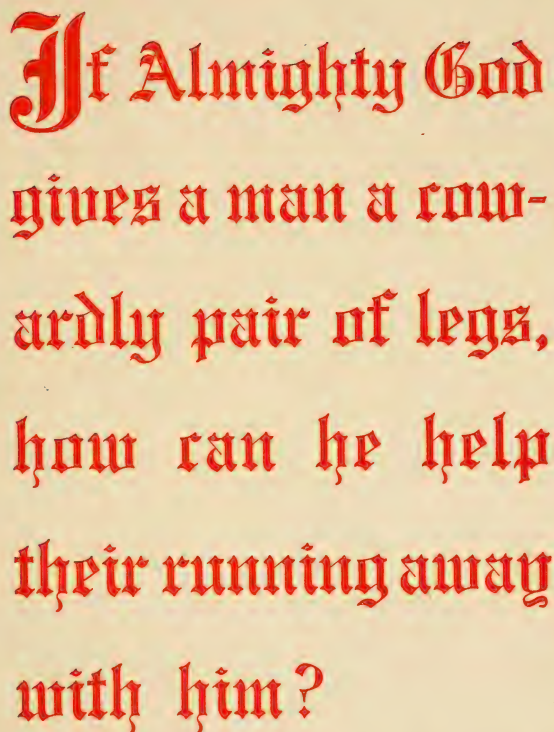 If Almighty God
gives a man a cow-
ardly pair of legs,
how can he help
their running away
with him?